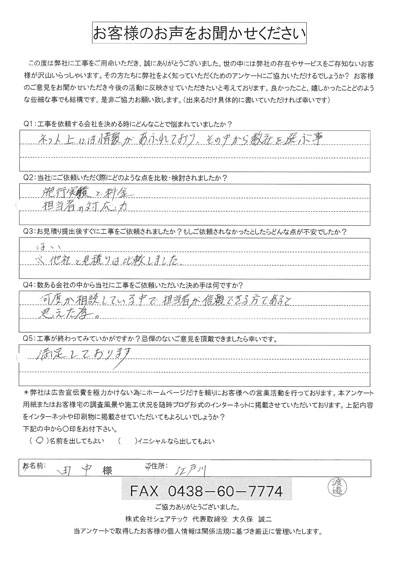 お客様のお声をお聞かせください
この度は弊社に工事をご用命いただき、誠にありがとうございました。世の中には弊社の存在やサービスをご存知ないお客様
が沢山いらっしゃいます。その方たちに弊社をよく知っていただくためのアンケートにご協力いただけるでしょうか？ お客様
のご意見をお聞かせいただき今後の活動に反映させていきたいと考えております。良かったこと、嬉しかったことどのよう
な些細な事でも結構です。是非ご協力お願い致します。(出来るだけ具体的に書いていただければ幸いです)
Q1：工事を依頼する会社を決める時にどんなことで悩まれていましたか？
ネット上には情報があふれており、その中から数社を選ぶ事
Q2：当社にご依頼いただく際にどのような点を比較・検討されましたか？
施行実績と料金
担当者の対応力
Q3：お見積り提出後すぐに工事をご依頼されましたか？もしご依頼されなかったとしたらどんな点が不安でしたか？
はい
※他社と見積りは比較しました
Q4：数ある会社の中から当社に工事をご依頼いただいた決め手は何ですか？
何度か相談している中で担当者が信頼できる方であると
思えた為。
Q5：工事が終わってみていかがですか？忌憚のないご意見を頂戴できましたら幸いです。
満足しております
＊弊社は広告宣伝費を極力かけない為にホームページだけを頼りにお客様への営業活動を行っております。本アンケート
用紙またはお客様宅の調査風景や施工状況を随時ブログ形式のインターネットに掲載させていただいております。上記内容
をインターネットや印刷物に掲載させていただいてもよろしいでしょうか？
下記の中から○印をお付下さい。
(○)名前を出してもよい ( )イニシャルなら出してもよい
お名前: 田中 様 ご住所: 江戸川
FAX 0438-60-7774
渡邉
ご協力ありがとうございました。
株式会社シェアテック 代表取締役 大久保 誠二
当アンケートで取得したお客様の個人情報は関係法規に基づき厳正に管理いたします。